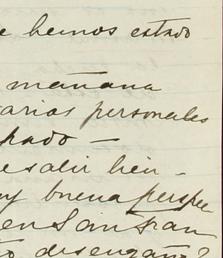 e hemos estado
mañana
arios personales
pado —
e salir bien -
y buena perspec
en San Fran
desengaño?